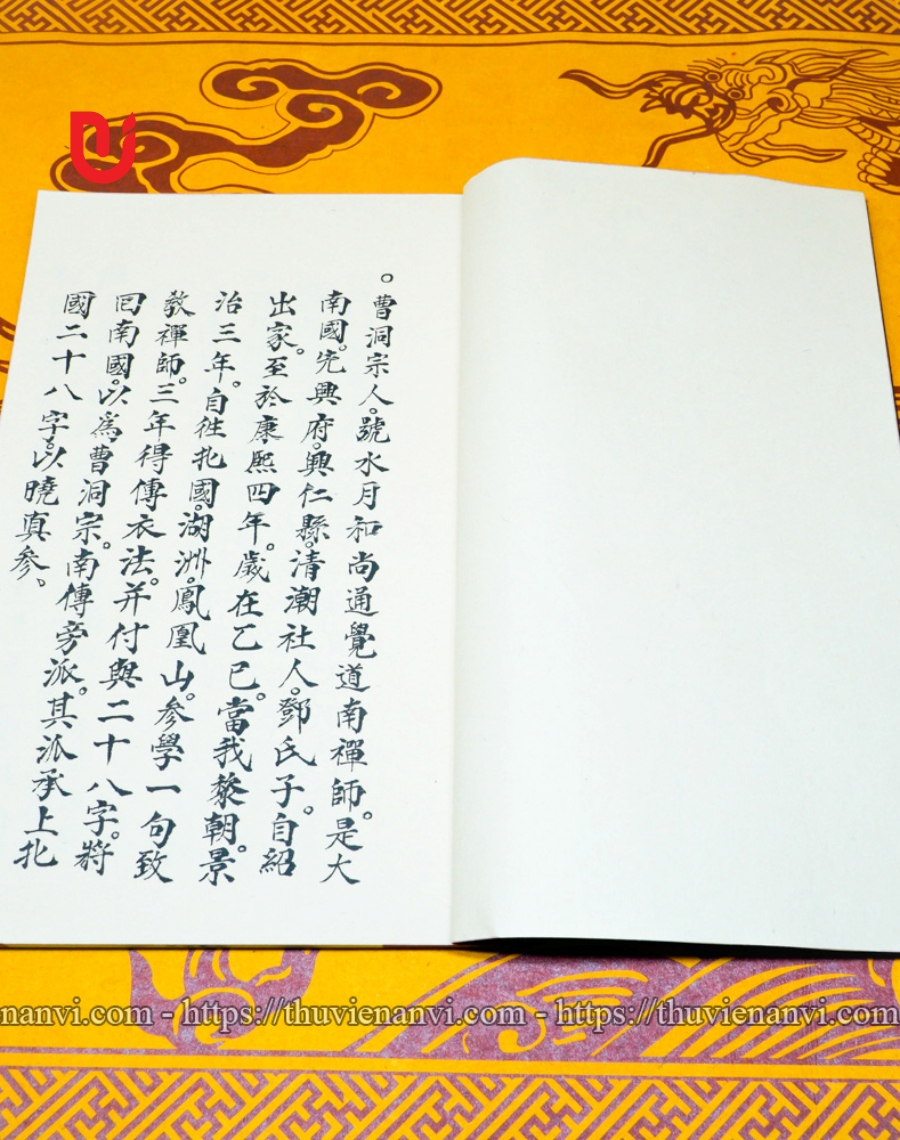 。曹洞宗人。號水月和尚通覺道南禪師。是大
南國。先興府。興仁縣。清潮社人。鄧氏子。自紹
出家。至於康熙四年。歲在乙巳。當我黎朝景
治三年。自往北國。湖洲。鳳凰山。參學一句致
教禪師。三年得傳衣法。并付與二十八字。將
囘南國。以為曹洞宗。南傳旁派。其派承上北
國二十八字。以曉真參、
nanvi.com - https://thuvienanvi.com - https://thuvienanvi.com